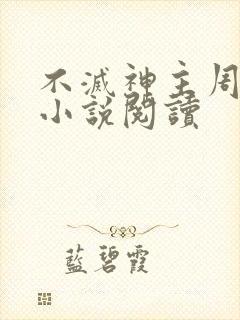 不滅神主周
小說閱讀
藍碧霞